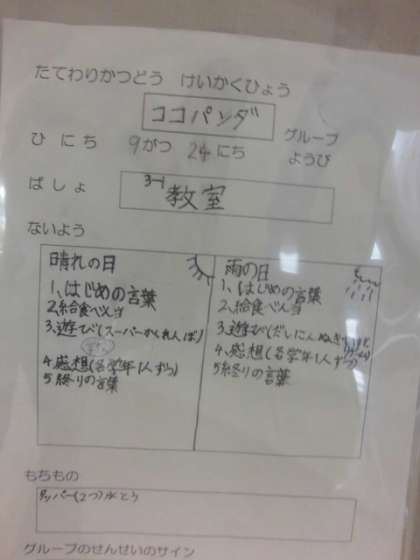 たてわりかつどう けいかくひょう
ココパンダ グループ
ひにち 9がつ 24にち ようび
ばしょ 3-1 教室
ないよう
晴れの日
1、はじめの言葉
2、給食べん当
3、遊び(スーパーかんけんぱ)
4、感想(各学年1人ずつ)
5 終りの言葉
雨の日
1、はじめの言葉
2、給食べん当
3、遊び
4、感想(各学年1人ずつ)
5 終りの言葉
もちもの
タッパー(2つ)水とう
グループのせんせいのサイン